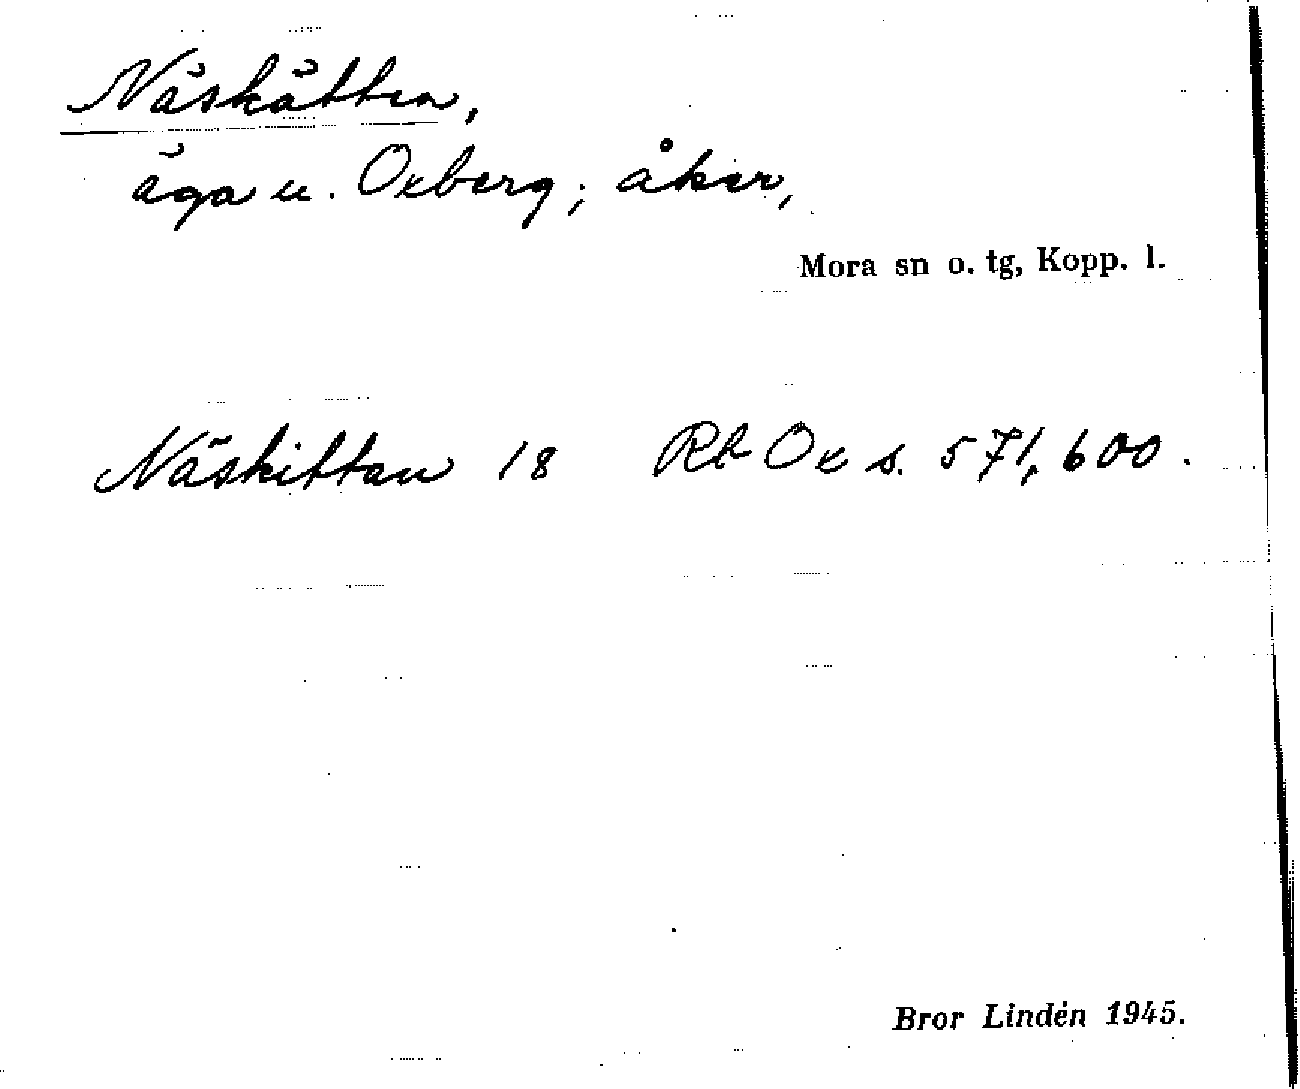 Näskätten,
äga u. Oxberg; åker,
Mora sn o. tg, Kopp. l.
Näskittan 18 Rb Ox s. 571, 600.
Bror Lindén 1945.